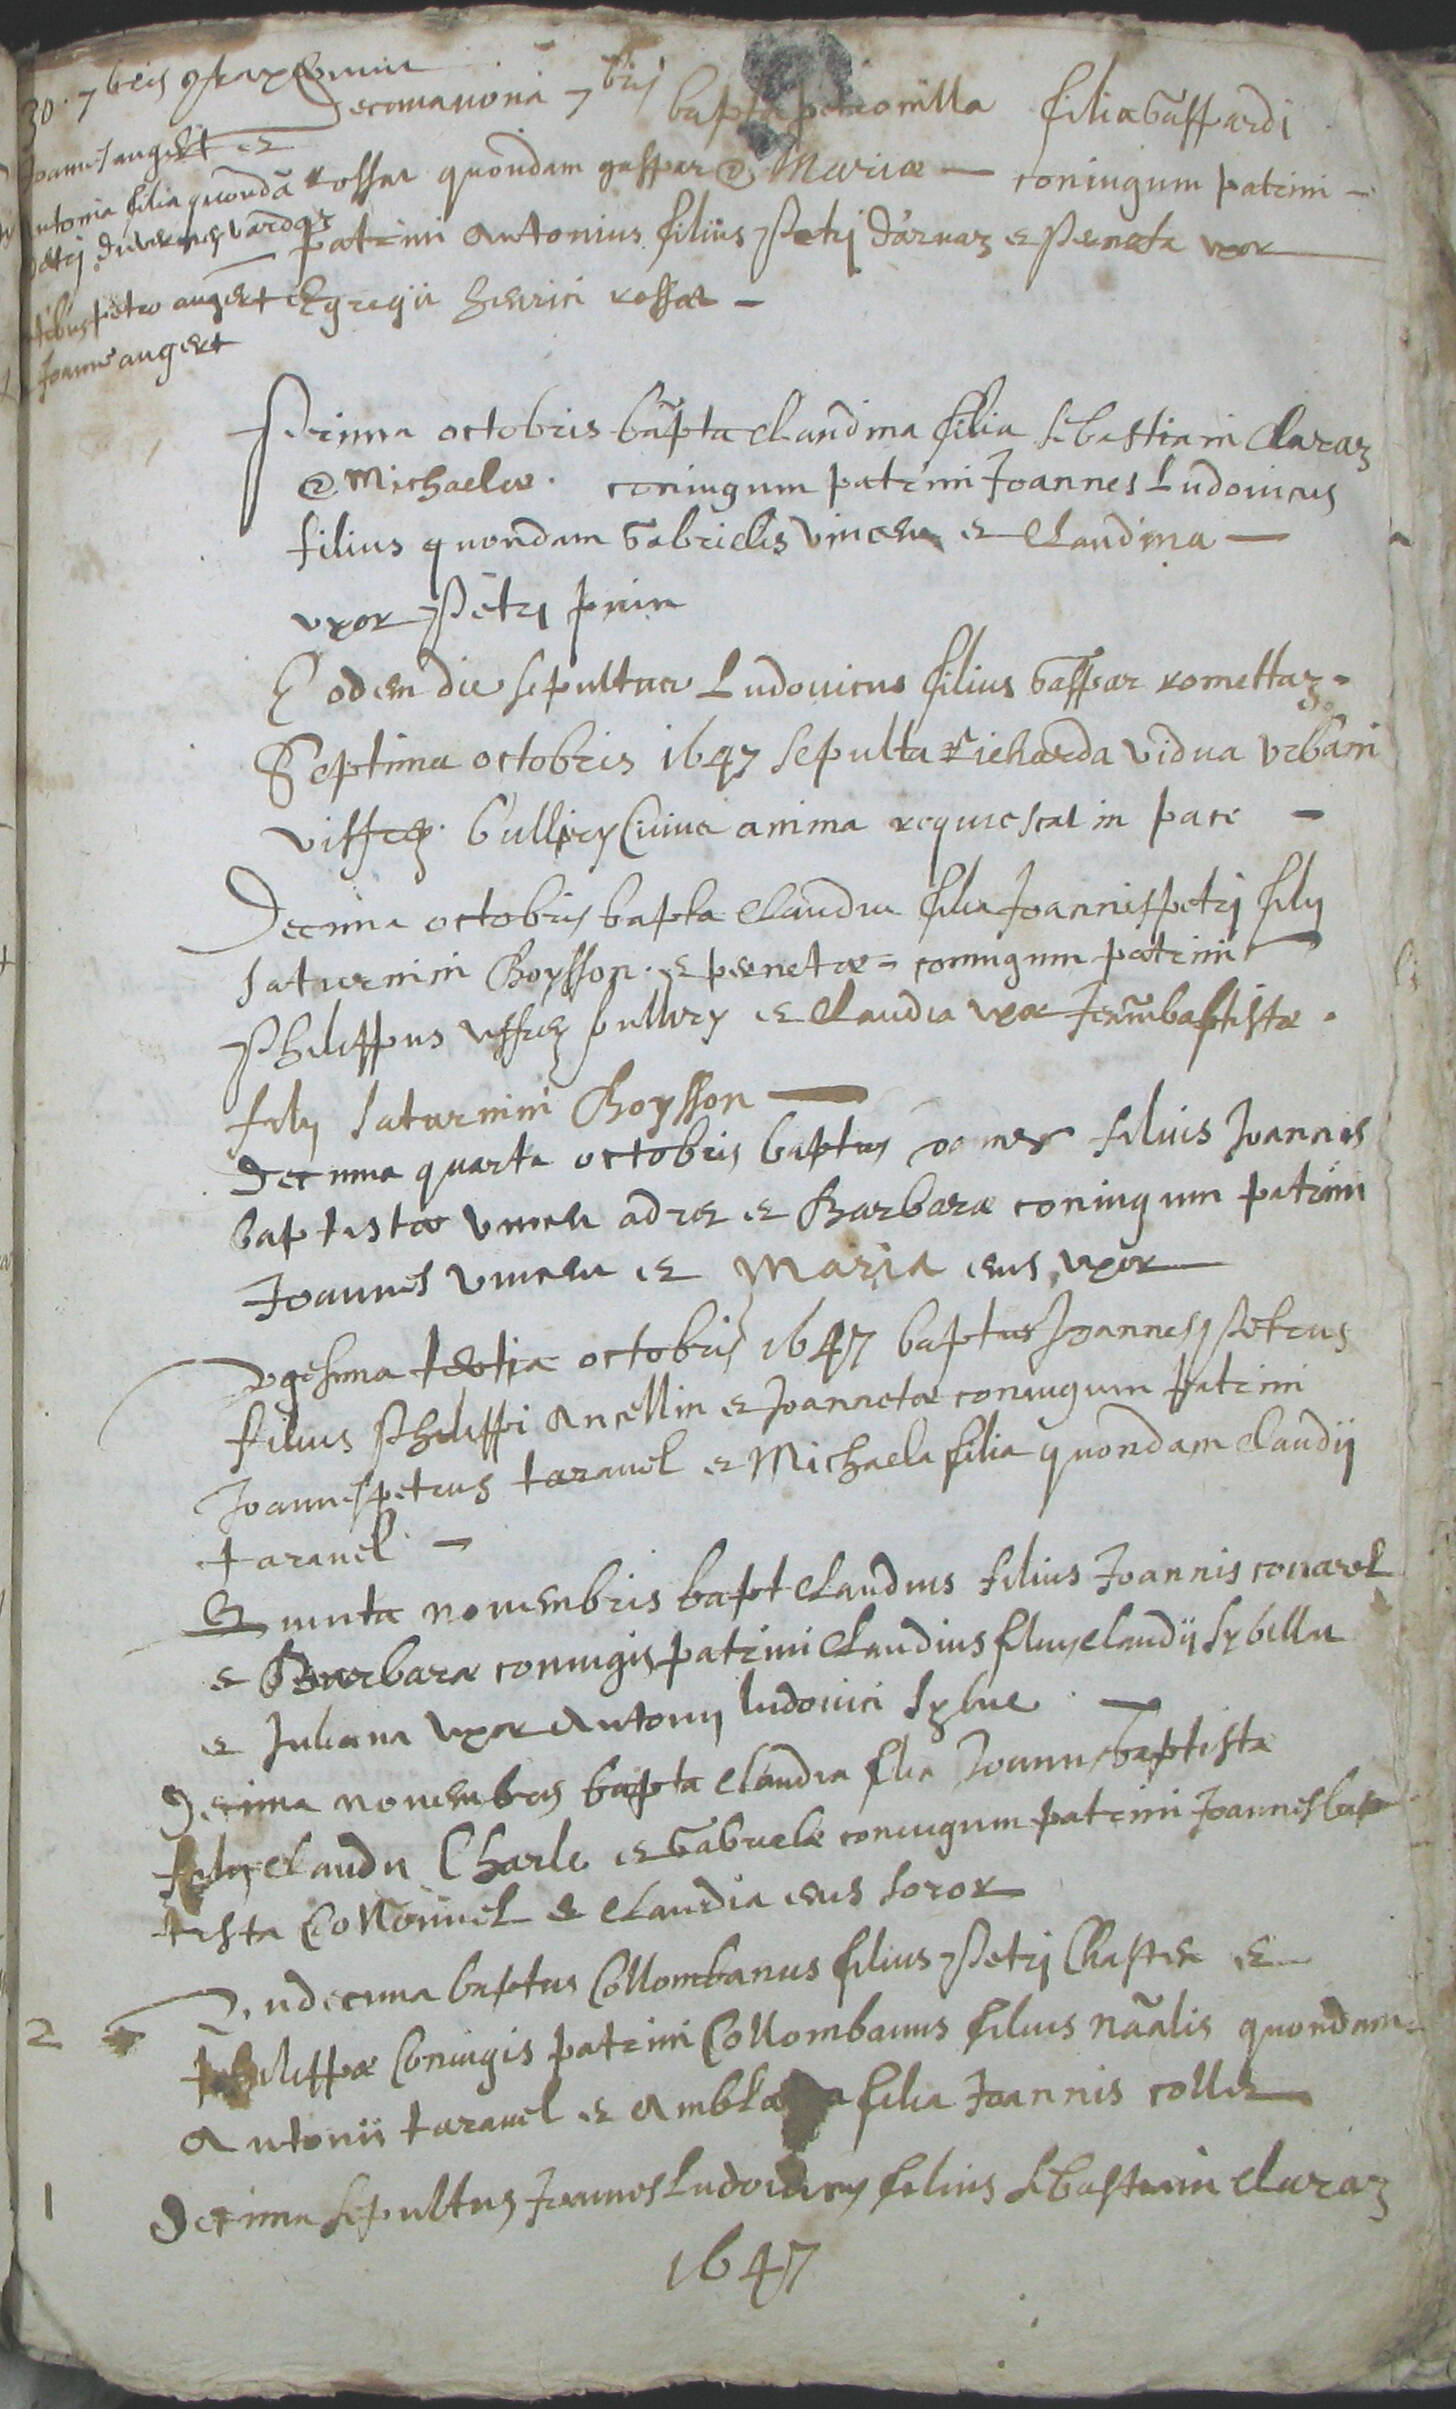 30. 7bris
Joannes augert et
Antonia filia quondã
petri
petro augert
Joanne augert
Decimanona 7bris bapta petronilla filia Gasspardi
rossat quondam gasspar & Mariæ — coniugum patrini —
patrini Antonius filius Petri darnaz et Peneta uxor
Egregii henrici rossat —
Prima octobris bapta Claudina filia sebastiani Claraz
& Michaelæ. coniugum patrini Joannes Ludovicus
filius quondam Gabrielis Vincen et Claudina —
uxor Petri
Eodem die sepultus Ludovicus filius Gasspar romettaz.
Septima octobris 1647 sepulta Richarda vidua Urbani
anima requiescat in pace —
Decima octobris bapta Claudia filia Joannispetri filij
Saturnini Boysson. et penetæ = coniugum patrini
Philippus et Claudia uxor baptistæ.
filij Saturnini Boysson —
Decima quarta octobris baptus filius Joannes
baptistæ Vincen et Barbaræ coniugum patrini
Joannes Vincen et Maria eius uxor
Vigesima tertia octobris 1647 baptus Joannes Petrus
filius Philippi Ancellin et Joannetæ coniugum patrini
Joannespetrus taravel et Michaela filia quondam Claudij
taravel —
Quinta novembris bapt Claudius filius Joannis
et Barbaræ coniugis patrini Claudius filius Claudij Sybellin
et Juliana uxor Antonij ludovici
Decima novembris bapta Claudia filia Joannisbaptistæ
filij Claudii Charle et Gabrielæ coniugum patrini Joannesbap
tista Collonnel et Claudia eius soror
2 Undecima baptus Collombanus filius Petri Chastex et
philippæ Coniugis patrini Collombanus filius nãalis quondam
Antonii taravel et filia Joannis collet
1 Decima sepultus Joannes Ludovicus filius sebastiani Claraz
1647